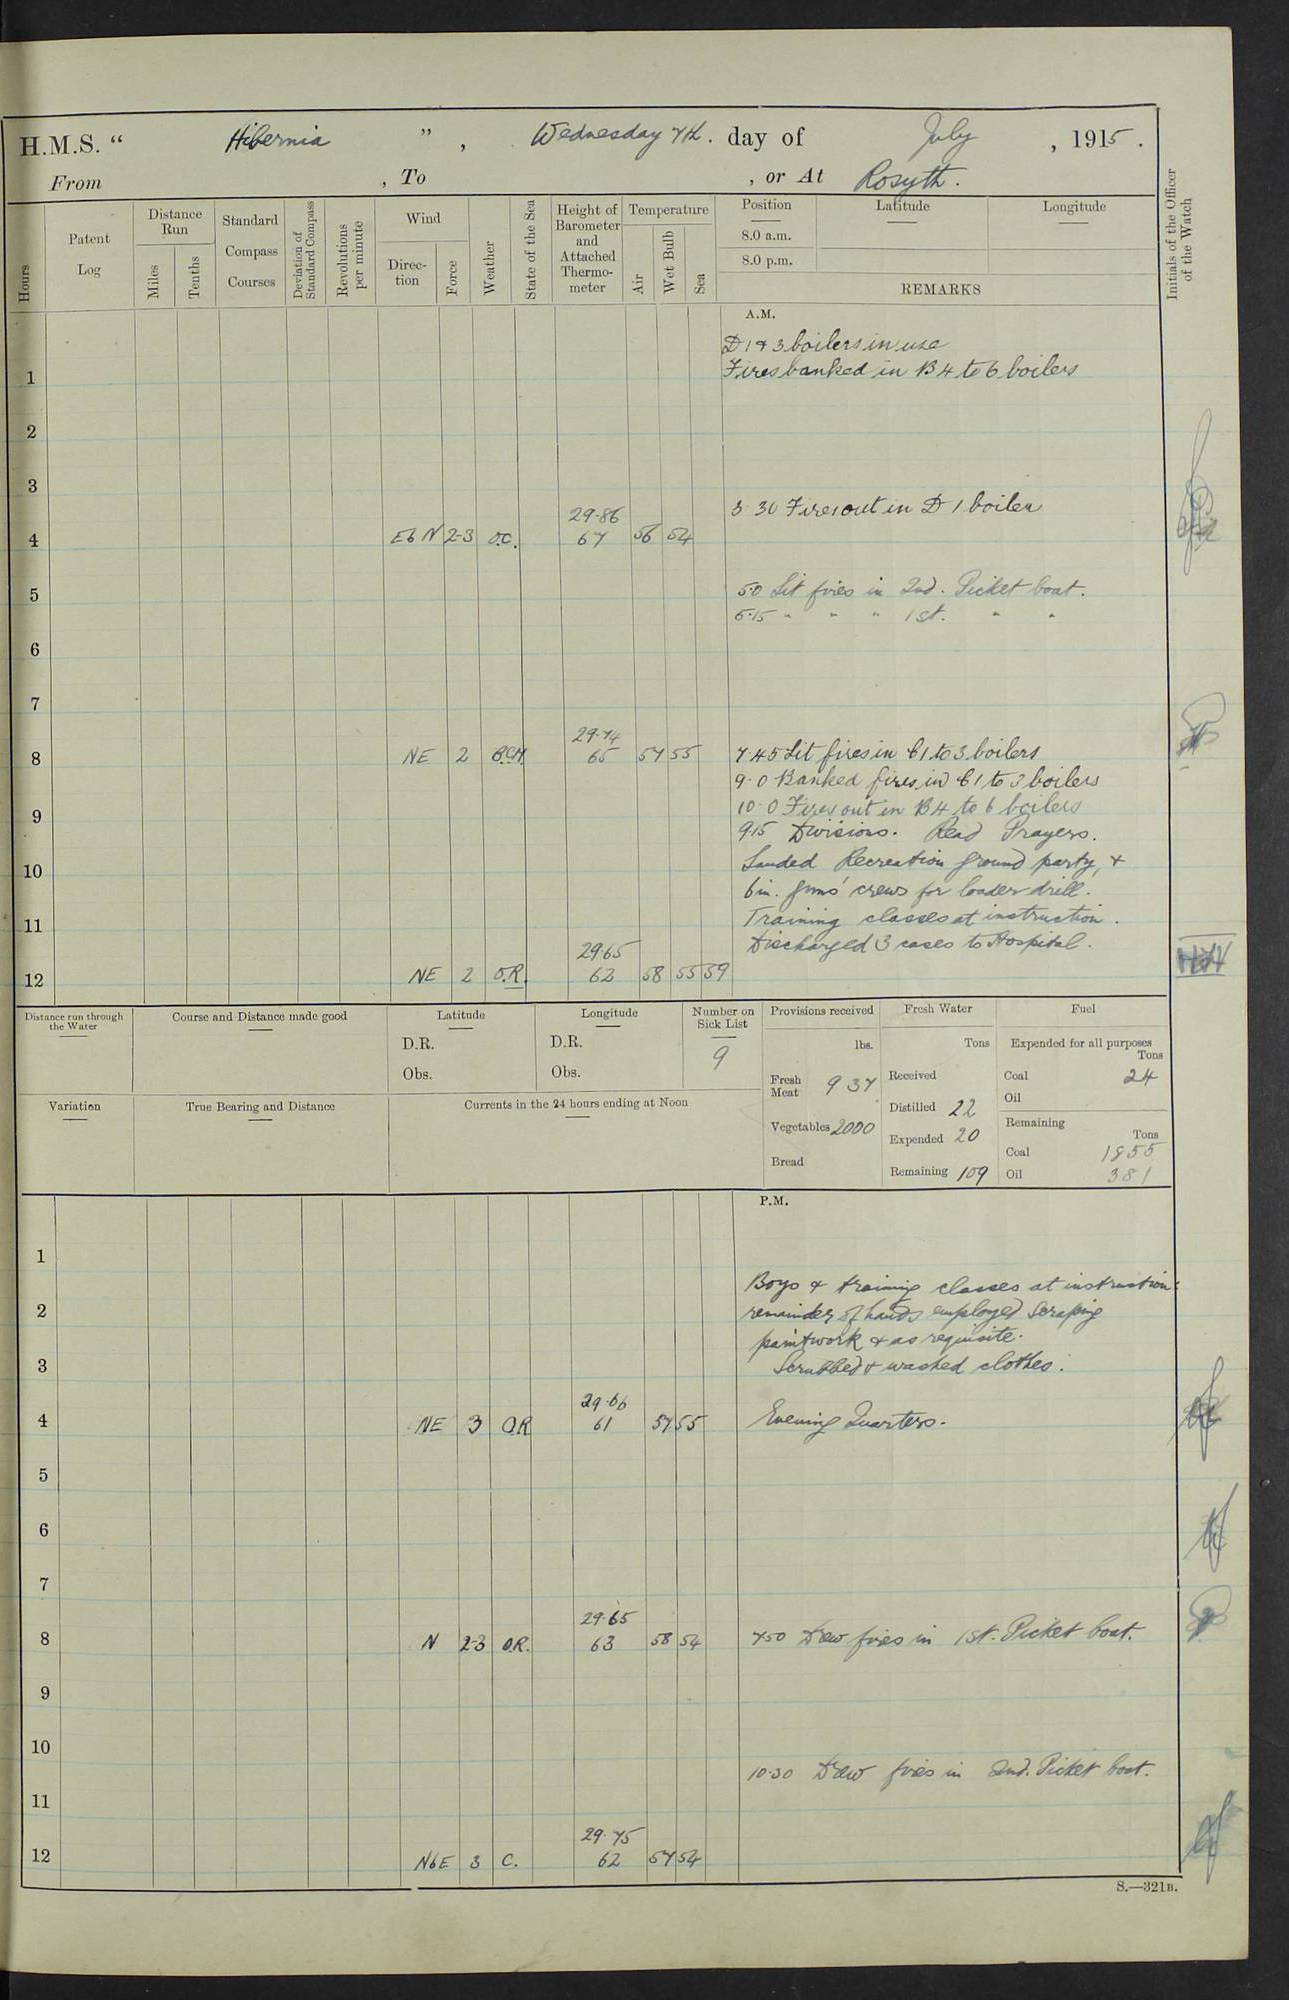 H.M.S. “ Hibernia ” , Wednesday 7th. day of July , 1915 .
From , To , or At Rosyth.
Hours
Patent Log
Distance Run
Miles
Tenths
Standard Compass Courses
Deviation of Standard Compass
Revolutions per minute
Wind
Direction
Force
Weather
State of the Sea
Height of Barometer and Attached Thermometer
Temperature
Air
Wet Bulb
Sea
Position
8.0 a.m.
8.0 p.m.
Latitude
Longitude
REMARKS
Initials of the Officer of the Watch
A.M.
D 1 & 3 boilers in use
1 Fires banked in B 4 to 6 boilers
2
3
3 30 Fires out in D 1 boiler
29·86
4 EbN 2-3 O.C. 67 56 54
5 5·0 Lit fires in 2nd. Picket boat.
5·15 " " " 1st. " "
6
7
29·74
8 NE 2 B.C.M. 65 57 55 7 45 Lit fires in C 1 to 3 boilers
9·0 Banked fires in C 1 to 3 boilers
10·0 Fires out in B 4 to 6 boilers
9 915 Divisions. Read Prayers.
10 Landed Recreation ground party, &
6in. guns' crews for loader drill.
11 Training classes at instruction.
Discharged 3 cases to Hospital.
2965
12 NE 2 O.R. 62 58 55 59
Distance run through the Water
Course and Distance made good
Latitude
D.R.
Obs.
Longitude
D.R.
Obs.
Number on Sick List
9
Provisions received
lbs.
Fresh Meat 937
Vegetables 2000
Bread
Fresh Water
Tons
Received
Distilled 22
Expended 20
Remaining 109
Fuel
Expended for all purposes
Tons
Coal 24
Oil
Remaining
Tons
Coal 1855
Oil 381
Variation
True Bearing and Distance
Currents in the 24 hours ending at Noon
P.M.
1
Boys & training classes at instruction
2 remainder of hands employed scraping
paintwork & as requisite.
3 Scrubbed & washed clothes.
29·66
4 NE 3 O.R 61 57 55 Evening Quarters.
5
6
7
29·65
8 N 2-3 O.R. 63 58 54 750 Drew fires in 1st. Picket boat.
9
10
10·30 Drew fires in 2nd. Picket boat.
11
29·75
12 NbE 3 C. 62 57 54
S.—321B.